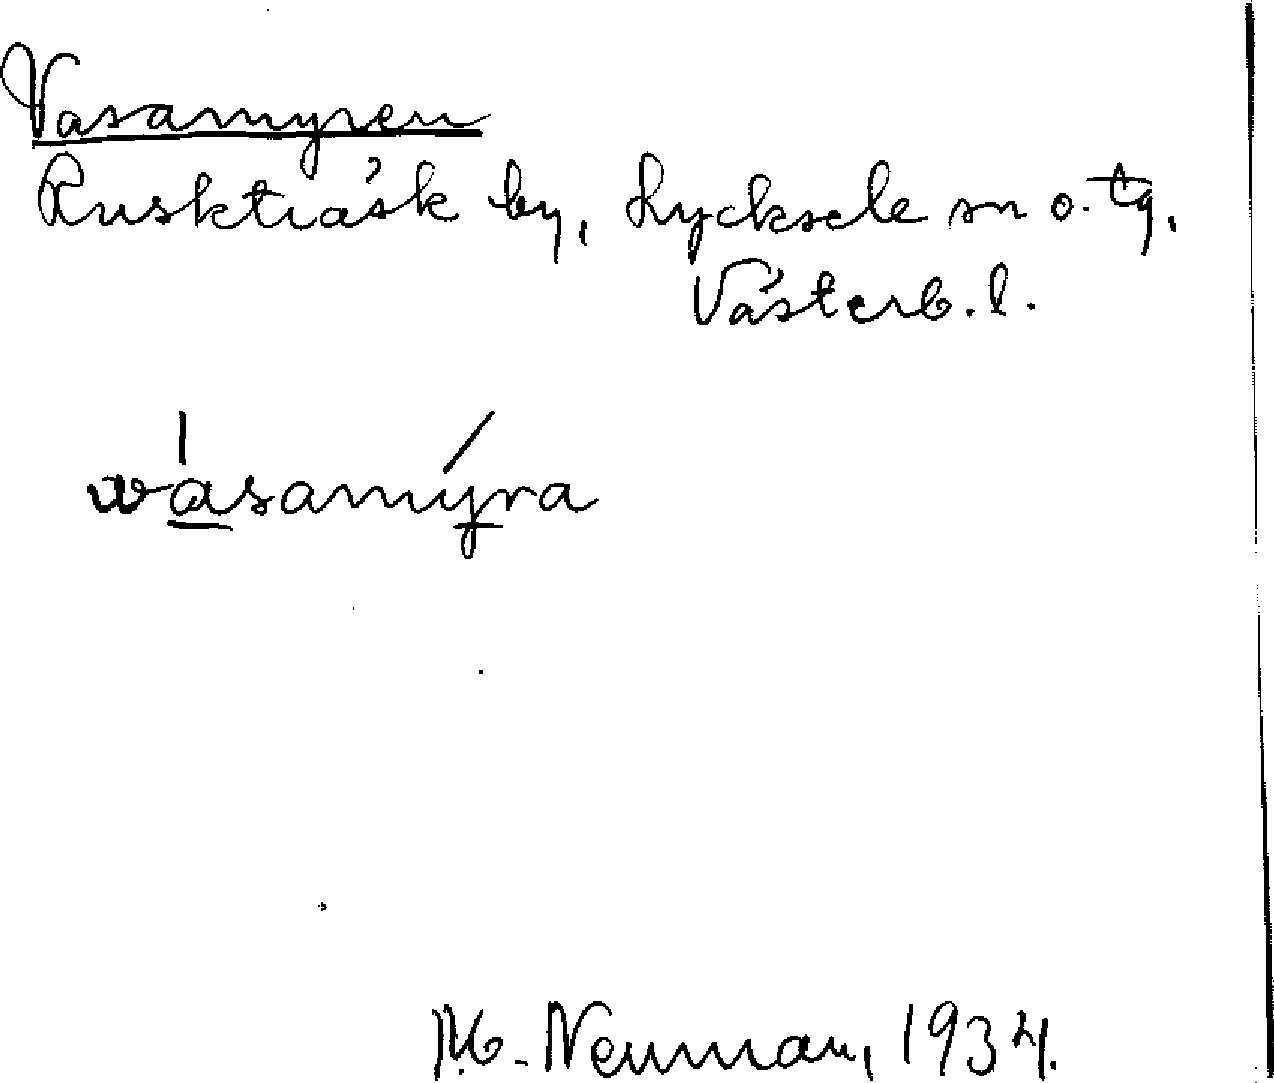 Vasamyren
Ruskträsk by, Lycksele sn o. tg,
Västerb. l.
wasamyra
Neuman, 1934.